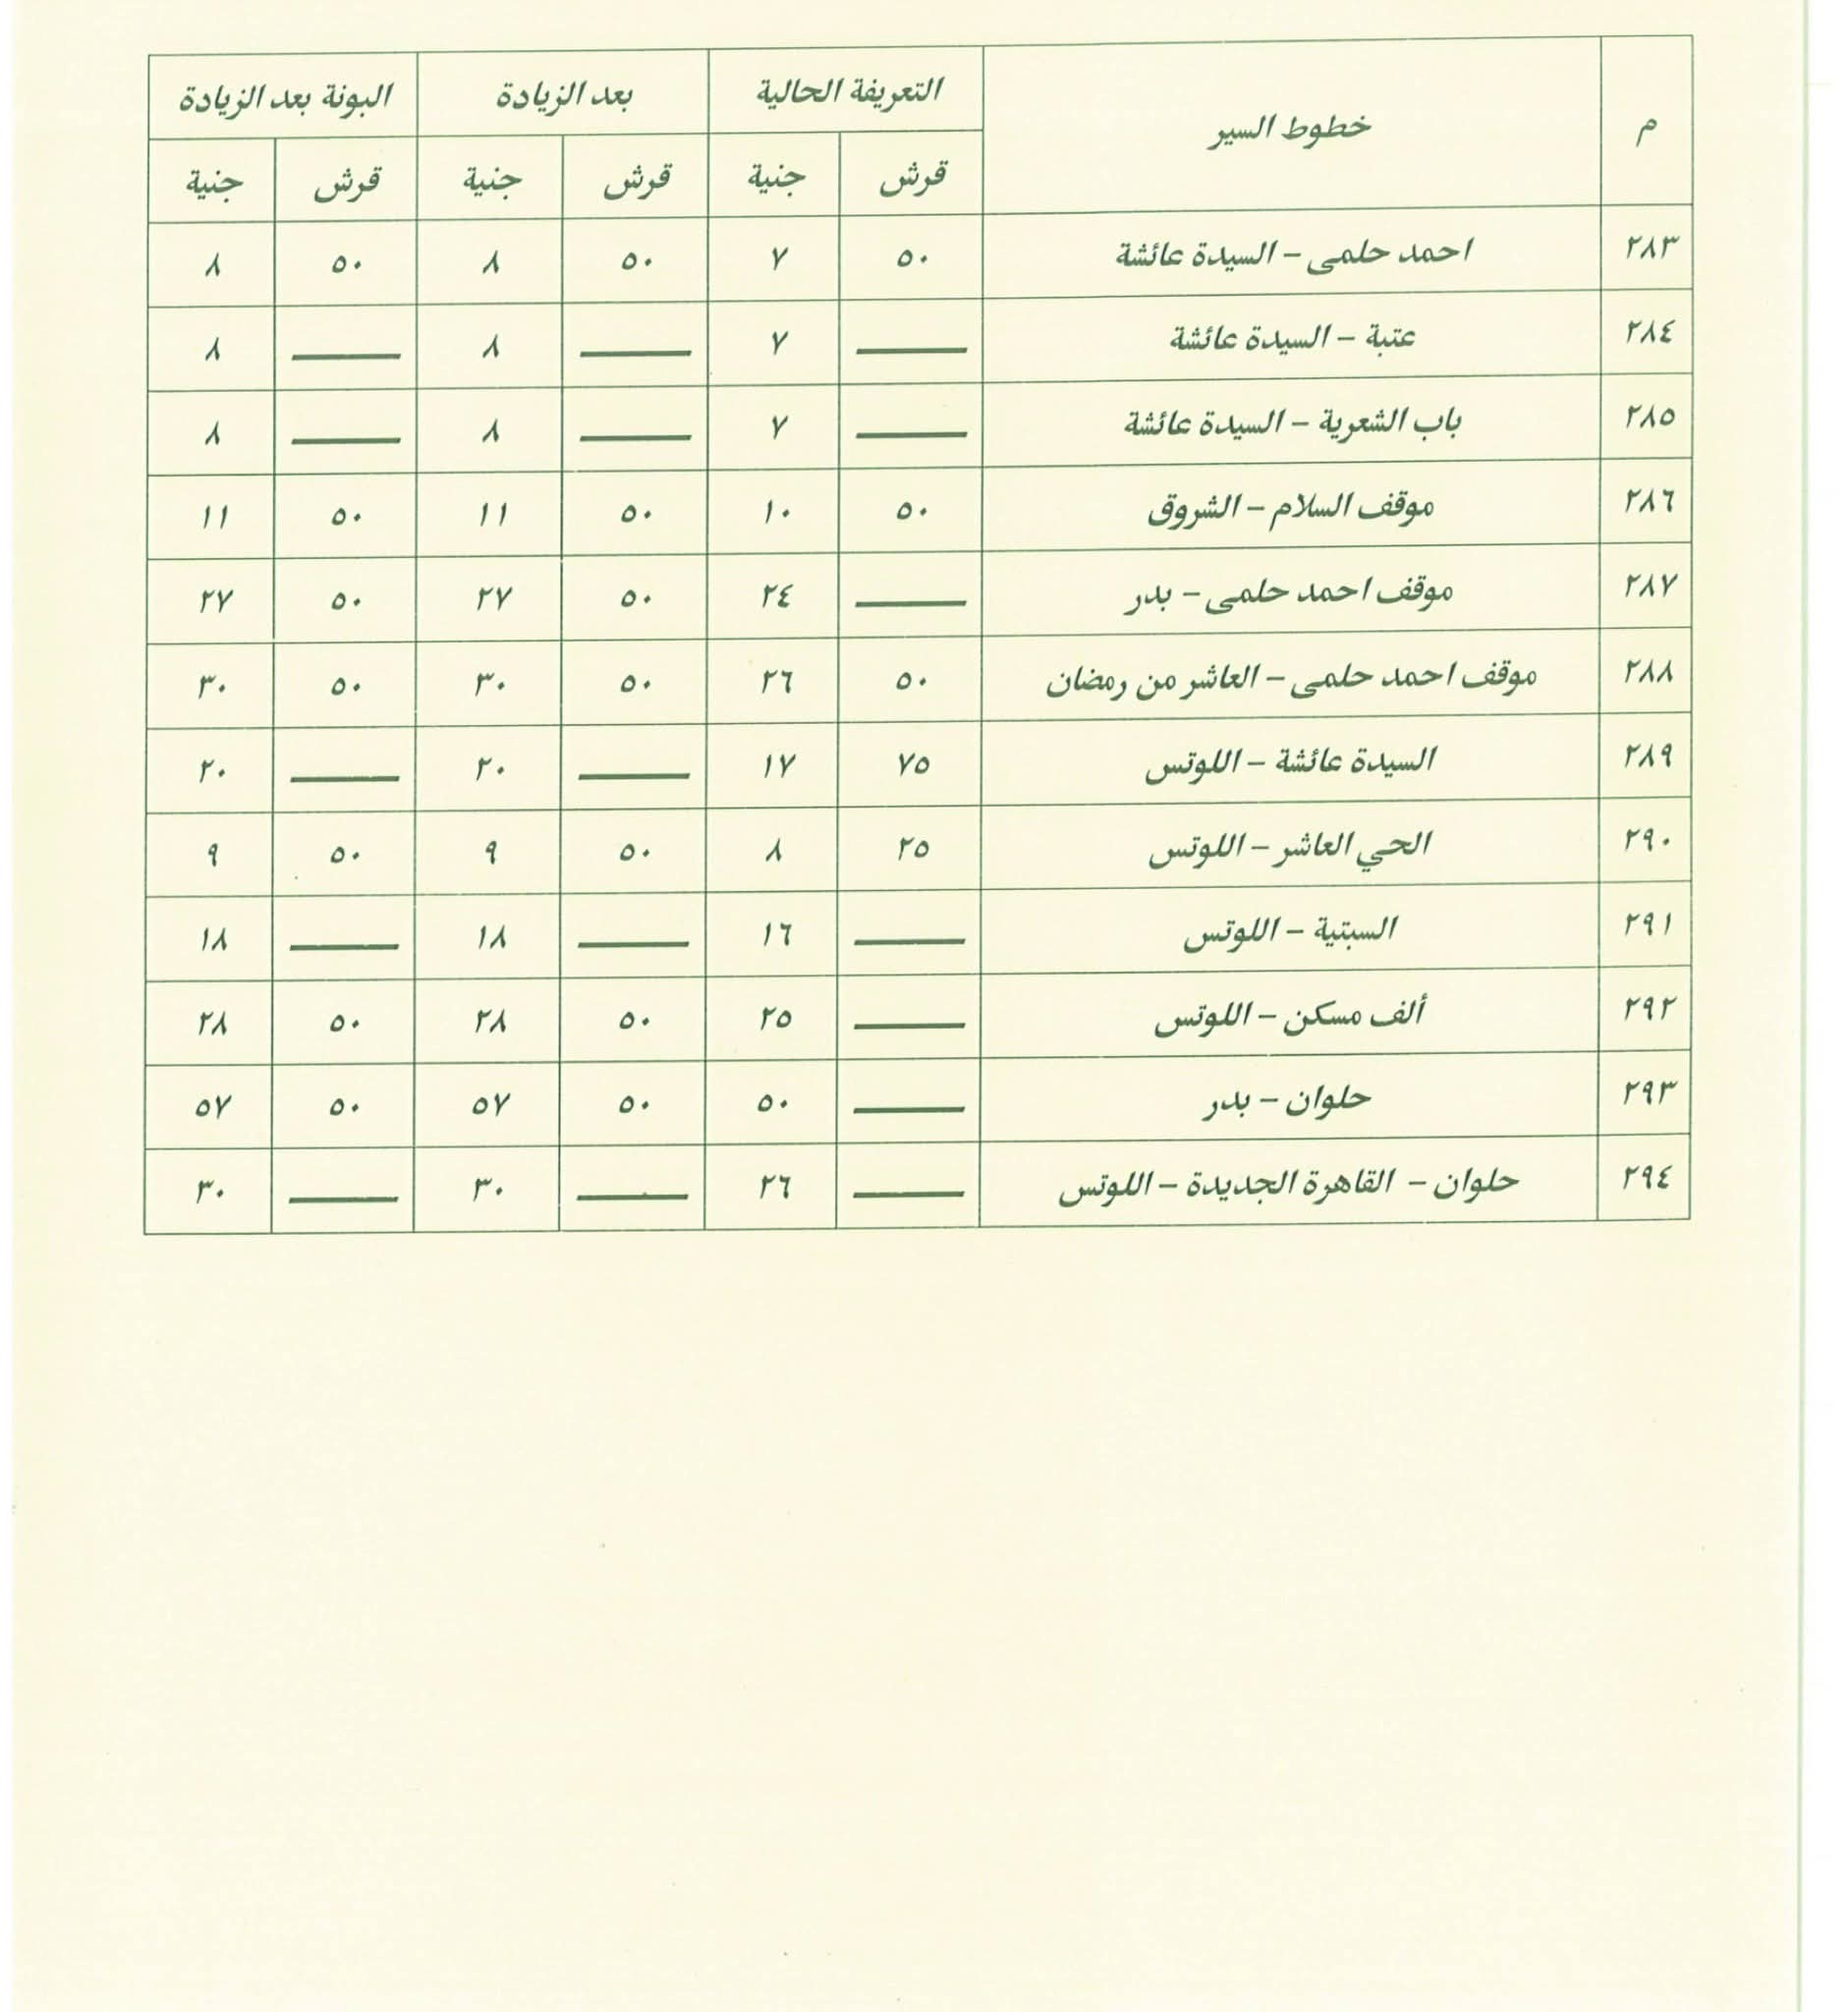 م خطوط السير التعريفة الحالية بعد الزيادة البونة بعد الزيادة
قرش جنية قرش جنية قرش جنية
٢٨٣ احمد حلمى – السيدة عائشة ٥٠ ٧ ٥٠ ٨ ٥٠ ٨
٢٨٤ عتبة – السيدة عائشة —— ٧ —— ٨ —— ٨
٢٨٥ باب الشعرية – السيدة عائشة —— ٧ —— ٨ —— ٨
٢٨٦ موقف السلام – الشروق ٥٠ ١٠ ٥٠ ١١ ٥٠ ١١
٢٨٧ موقف احمد حلمى – بدر —— ٢٤ ٥٠ ٢٧ ٥٠ ٢٧
٢٨٨ موقف احمد حلمى – العاشر من رمضان ٥٠ ٢٦ ٥٠ ٣٠ ٥٠ ٣٠
٢٨٩ السيدة عائشة – اللوتس ٧٥ ١٧ —— ٢٠ —— ٢٠
٢٩٠ الحي العاشر – اللوتس ٢٥ ٨ ٥٠ ٩ ٥٠ ٩
٢٩١ السبتية – اللوتس —— ١٦ —— ١٨ —— ١٨
٢٩٢ ألف مسكن – اللوتس —— ٢٥ ٥٠ ٢٨ ٥٠ ٢٨
٢٩٣ حلوان – بدر —— ٥٠ ٥٠ ٥٧ ٥٠ ٥٧
٢٩٤ حلوان – القاهرة الجديدة – اللوتس —— ٢٦ —— ٣٠ —— ٣٠